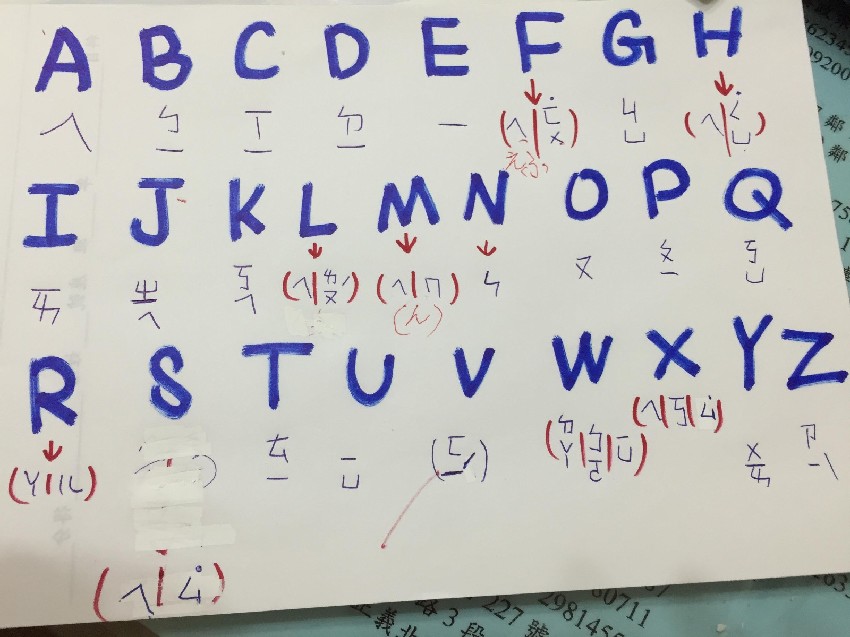 A B C D E F G H
ㄟ ㄅㄧ ㄒㄧ ㄉㄧ ㄧ (ㄟ|ㄈㄨ˙) ㄐㄩ (ㄟ|ㄑㄩ˙)
えふ
I J K L M N O P Q
ㄞ ㄓㄟ ㄎㄟ (ㄟ|ㄌㄡˊ) (ㄟ|ㄇ) ㄣ ㄡ ㄆㄧ ㄎㄩ
(ん)
R S T U V W X Y Z
(ㄚ|ㄦ) ㄊㄧ ㄧㄩ (ㄈㄧ) (ㄉㄚ|ㄅㄛ|ㄩ) (ㄟ|ㄎ|ㄙ˙) ㄨㄞ ㄗㄧˋ
(ㄟ|ㄙ˙)
3 段 227 號